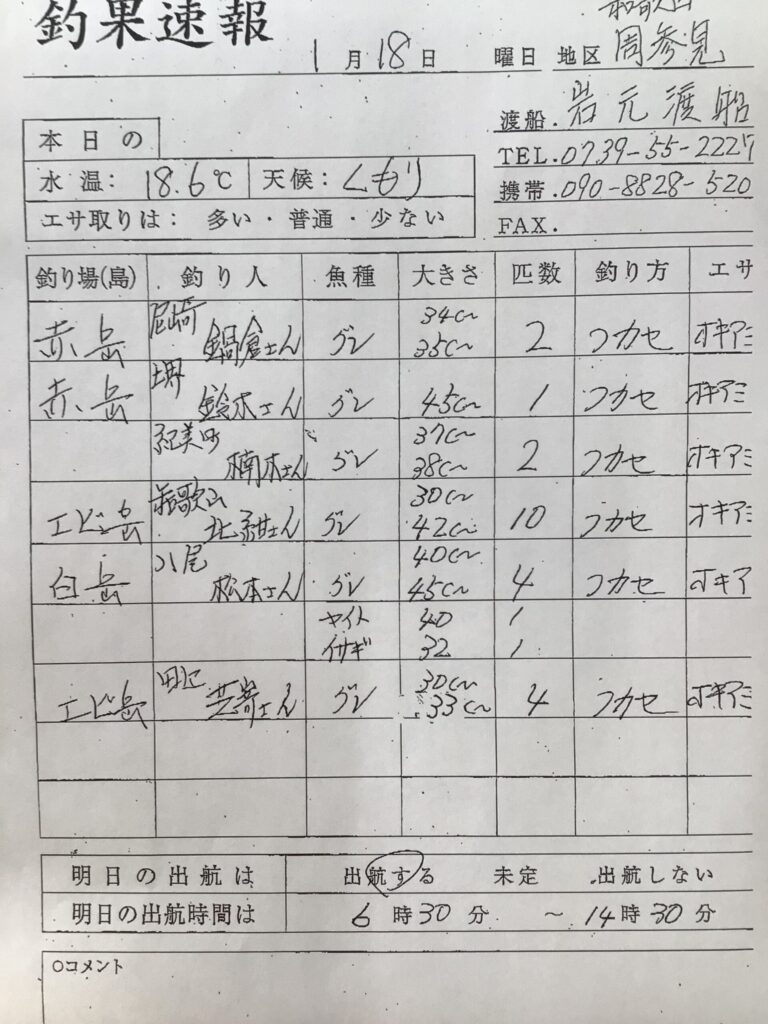 釣果速報
1月18日 曜日 地区 和歌山 周参見
渡船. 岩元渡船
TEL. 0739-55-2227
携帯. 090-8828-520
FAX.
本日の
水温: 18.6℃ 天候: くもり
エサ取りは: 多い・普通・少ない
釣り場(島) 釣り人 魚種 大きさ 匹数 釣り方 エサ
赤岳 尼崎 鍋倉さん グレ 34cm 35cm 2 フカセ オキアミ
赤岳 堺 鈴木さん グレ 45cm 1 フカセ オキアミ
紀美町 楠本さん グレ 37cm 38cm 2 フカセ オキアミ
エビ岳 和歌山 北紺さん グレ 30cm 42cm 10 フカセ オキアミ
白岳 八尾 松本さん グレ 40cm 45cm 4 フカセ オキア
ヤイト 40 1
イサギ 32 1
エビ岳 田辺 芝嵜さん グレ 30cm 33cm 4 フカセ オキアミ
明日の出航は 出航する 未定 出航しない
明日の出航時間は 6時30分 ～14時30分
○コメント